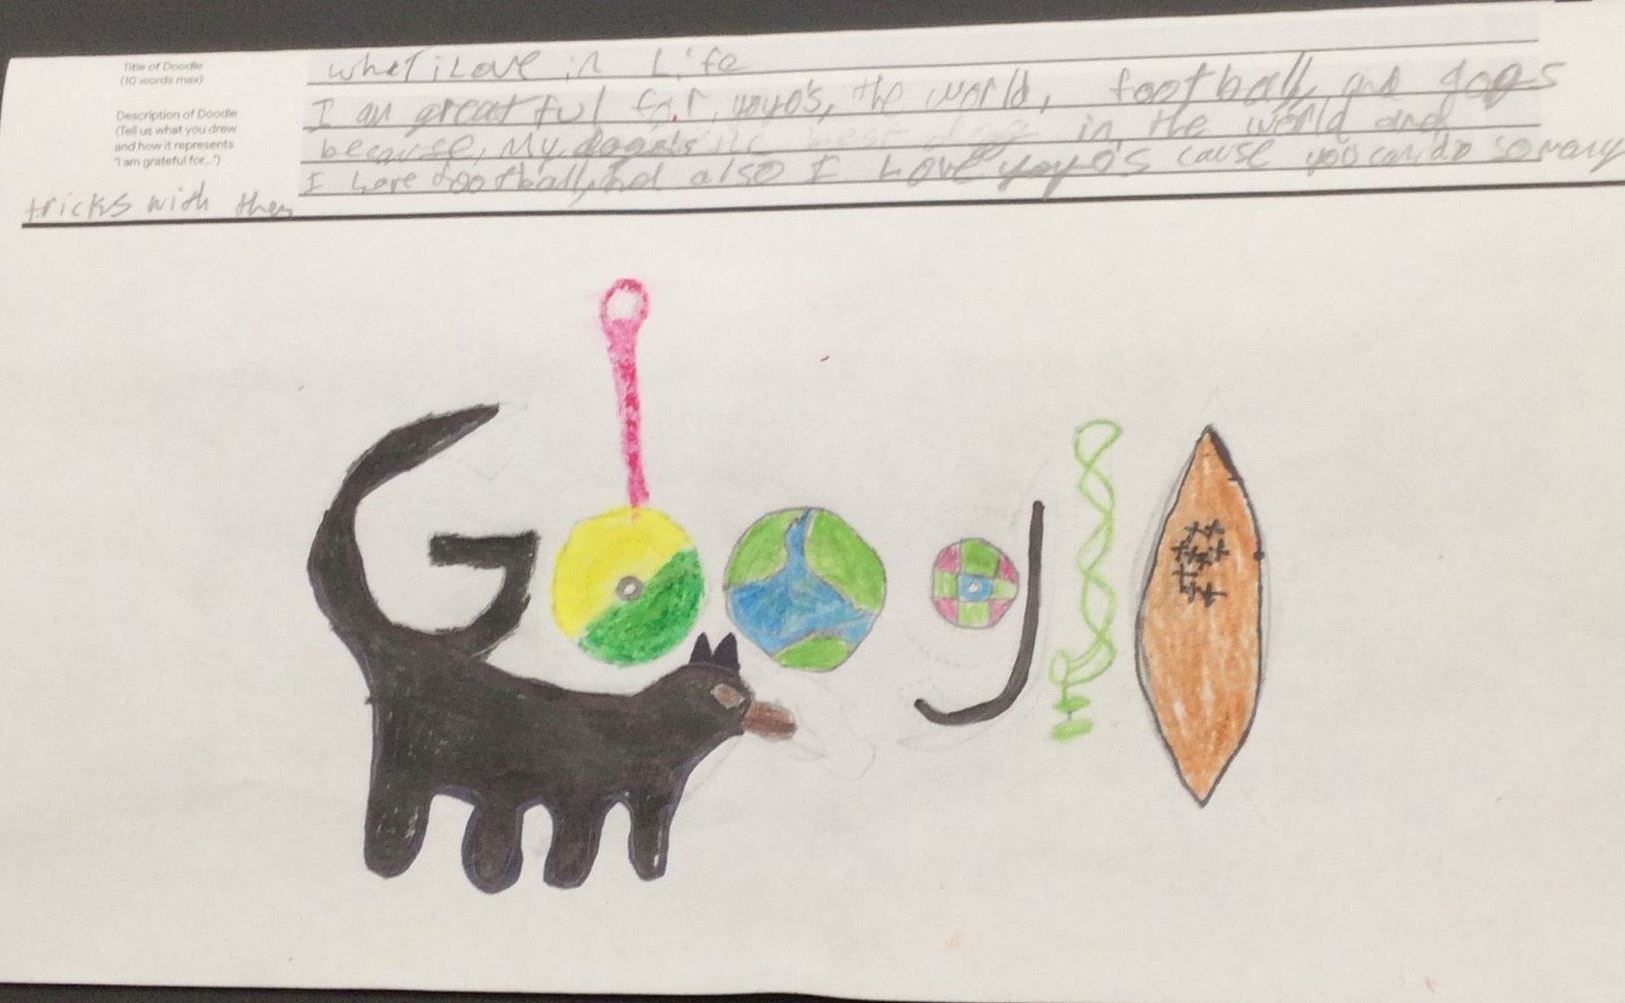 Title of Doodle
(10 words max)
what i Love in Life
Description of Doodle
(Tell us what you drew
and how it represents
"I am grateful for...")
I am greatful for, yoyo's, the world, football and dogs
because, My dog is the best dog in the world and
I love football, and also I Love yoyo's cause you can do so many
tricks with them
Googl